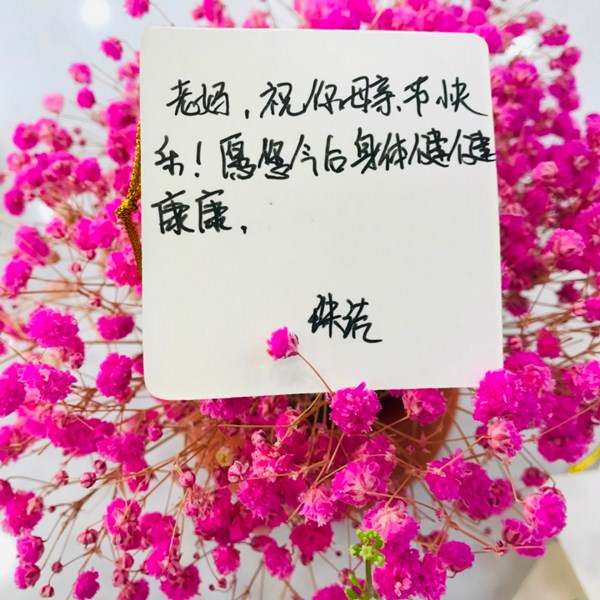 老妈，祝你母亲节快
乐！愿您今后身体健健
康康，